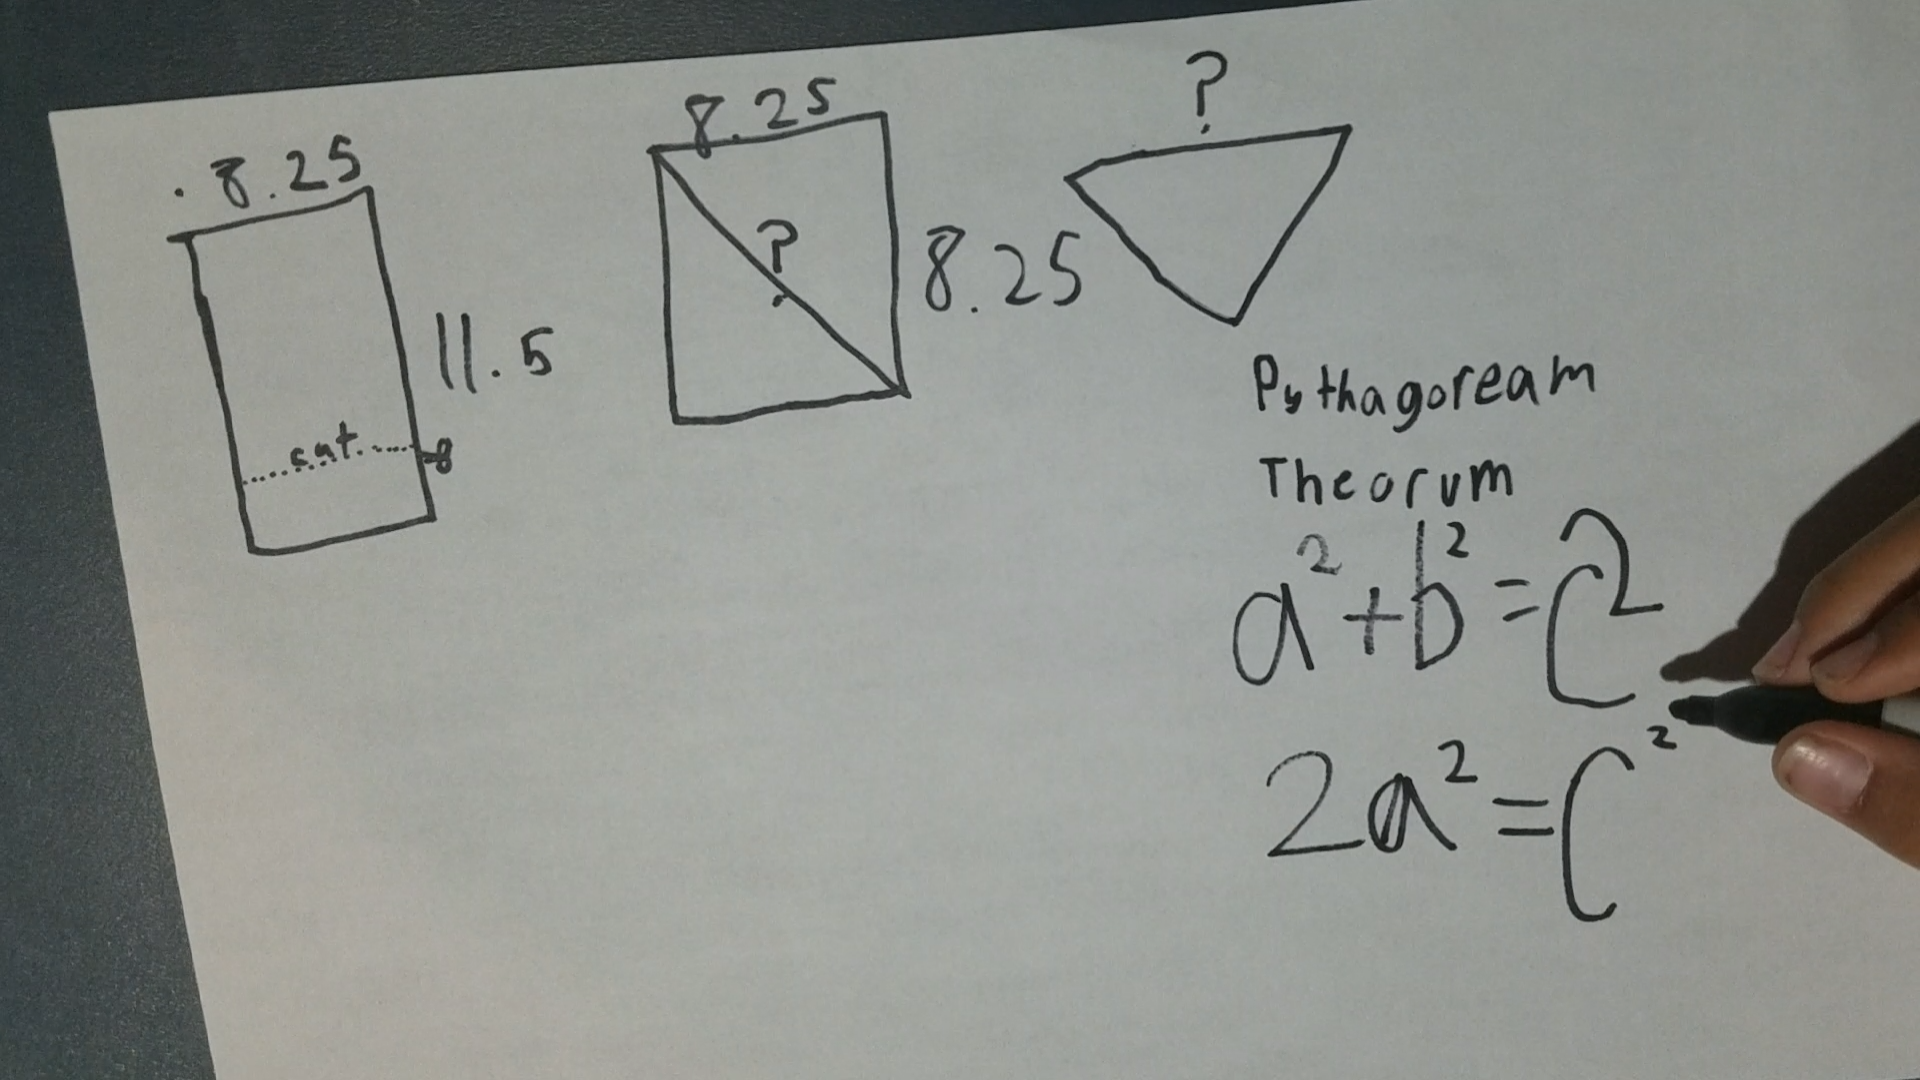 8.25
11.5
cut
8.25
?
8.25
?
Pythagoream
Theorum
a²+b²=c²
2a²=c²